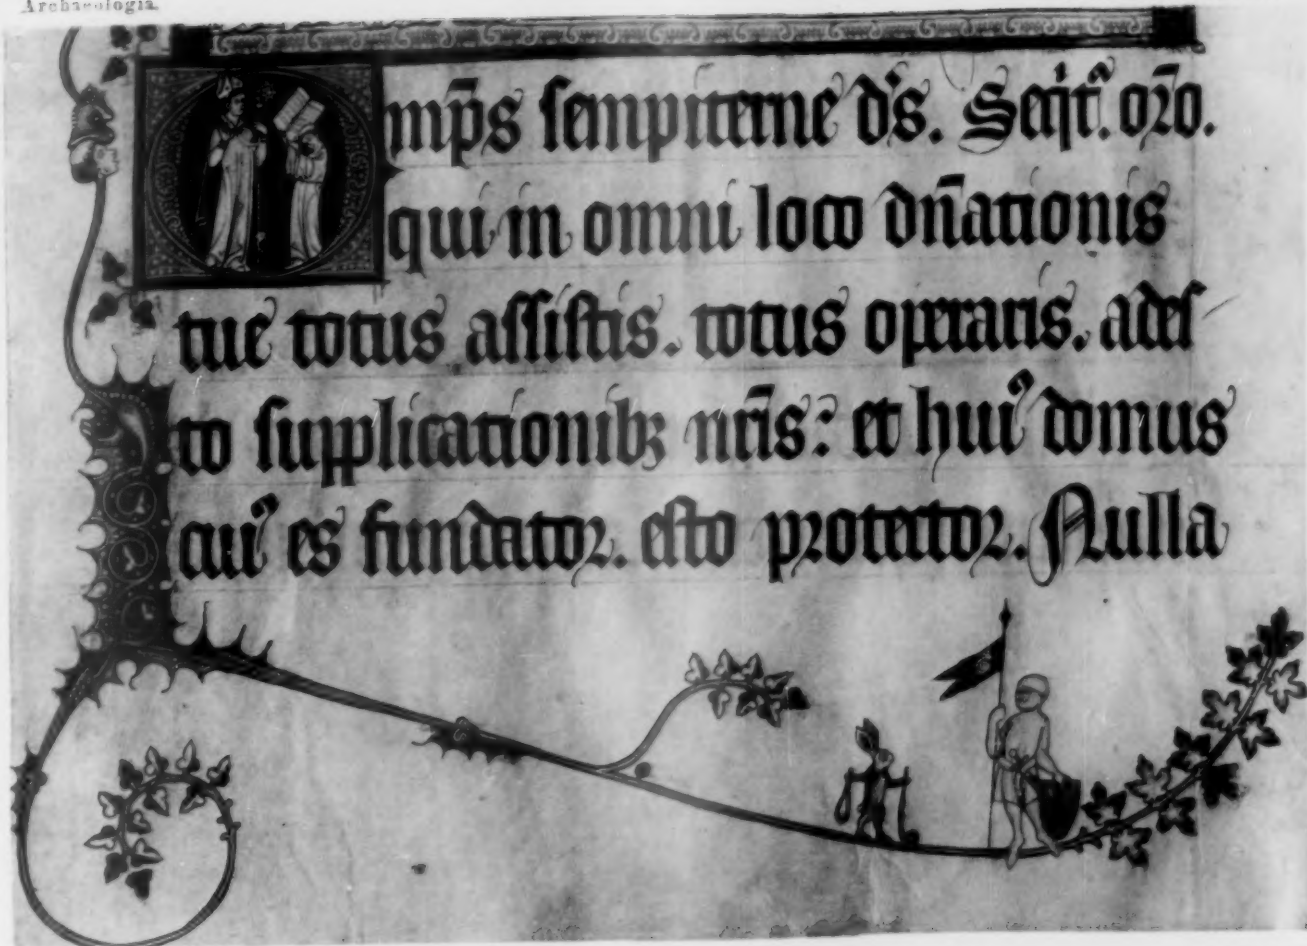 Archaeologia
Omp̄s sempiterne d's. Seqit᷑. or̄o.
qui in omni loco dn̄ationis
tue totus assistis. totus operaris. ades
to supplicationibꝫ nr̄is: et huiꝰ domus
cuiꝰ es fundator. esto protector. Nulla